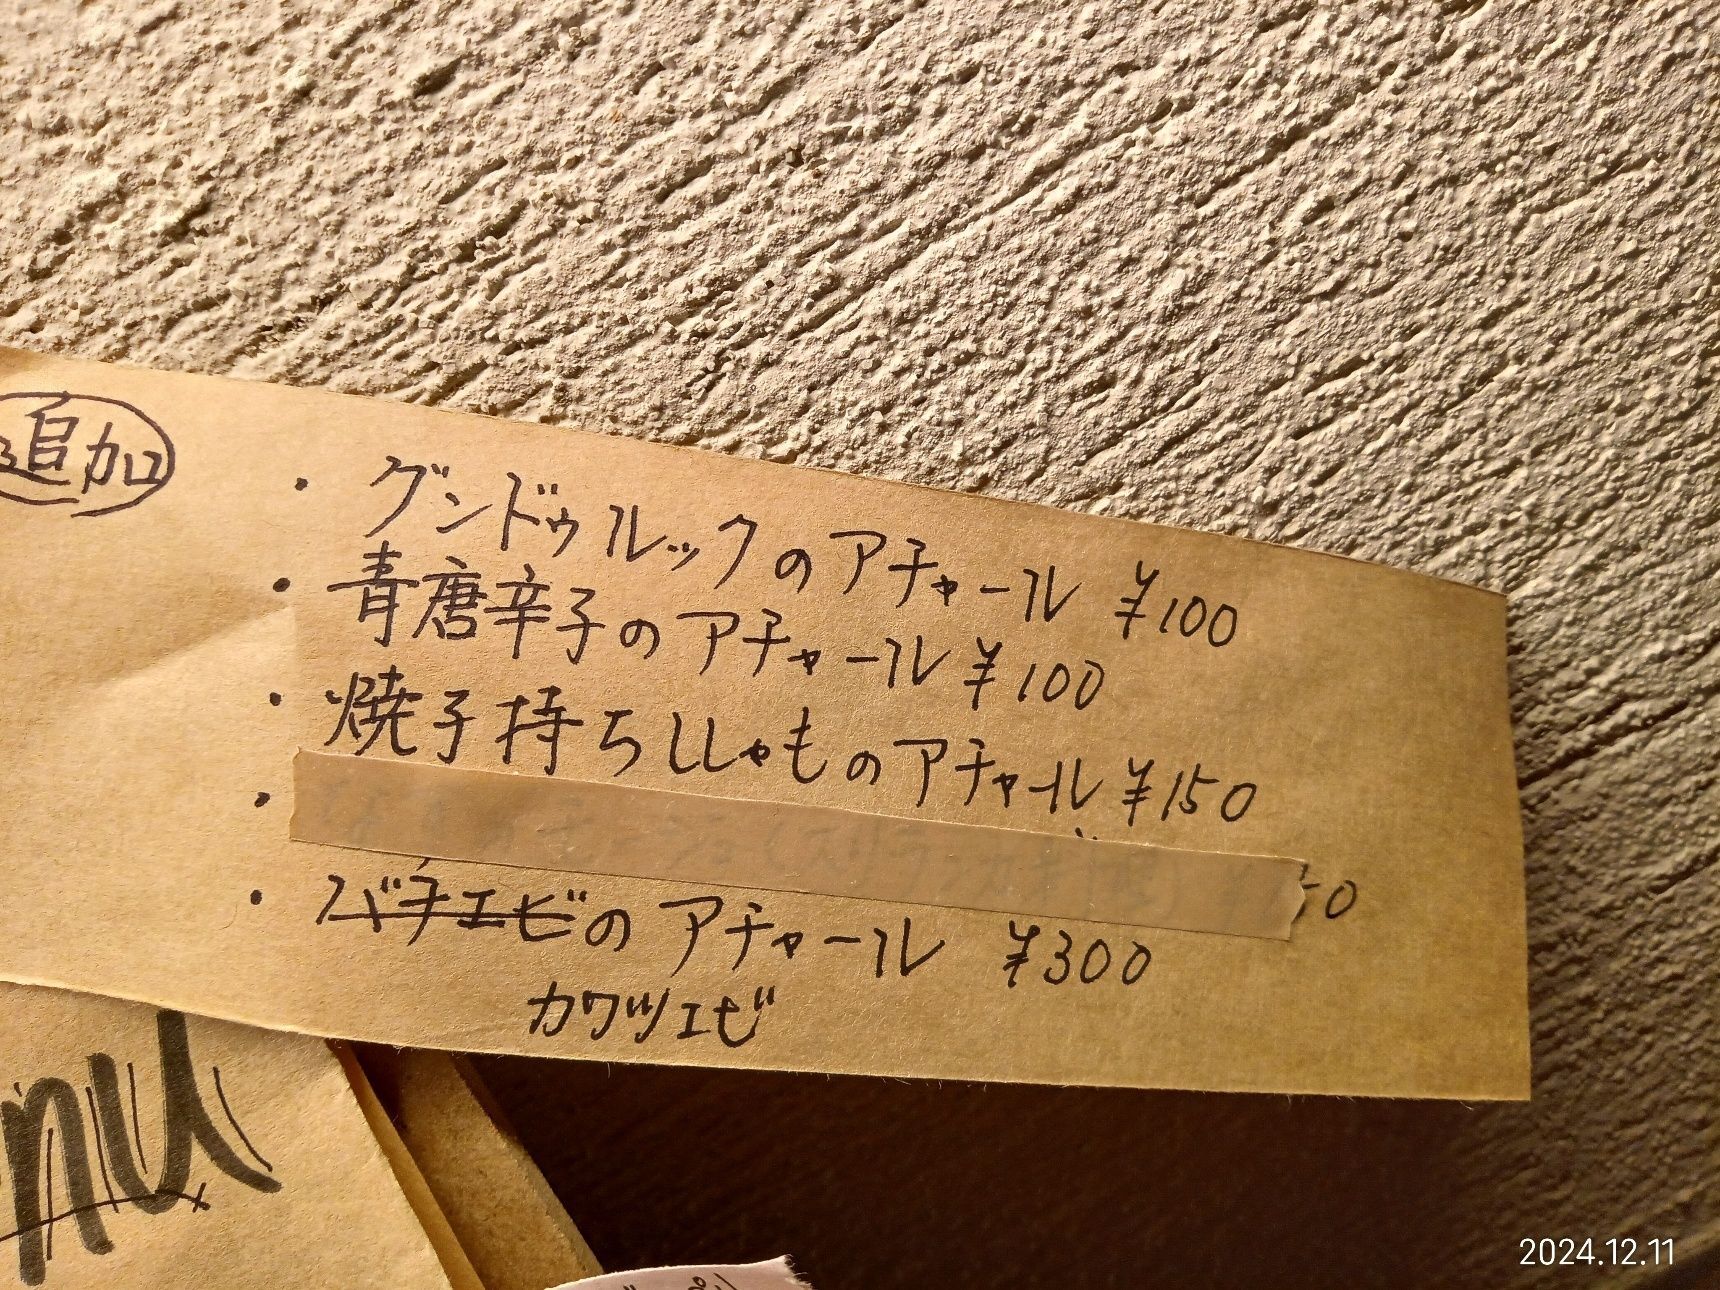 追加
・グンドゥルックのアチャール ¥100
・青唐辛子のアチャール ¥100
・焼子持ちししゃものアチャール ¥150
・ 50
・バチエビのアチャール ¥300
カワツエビ
nu
2024.12.11